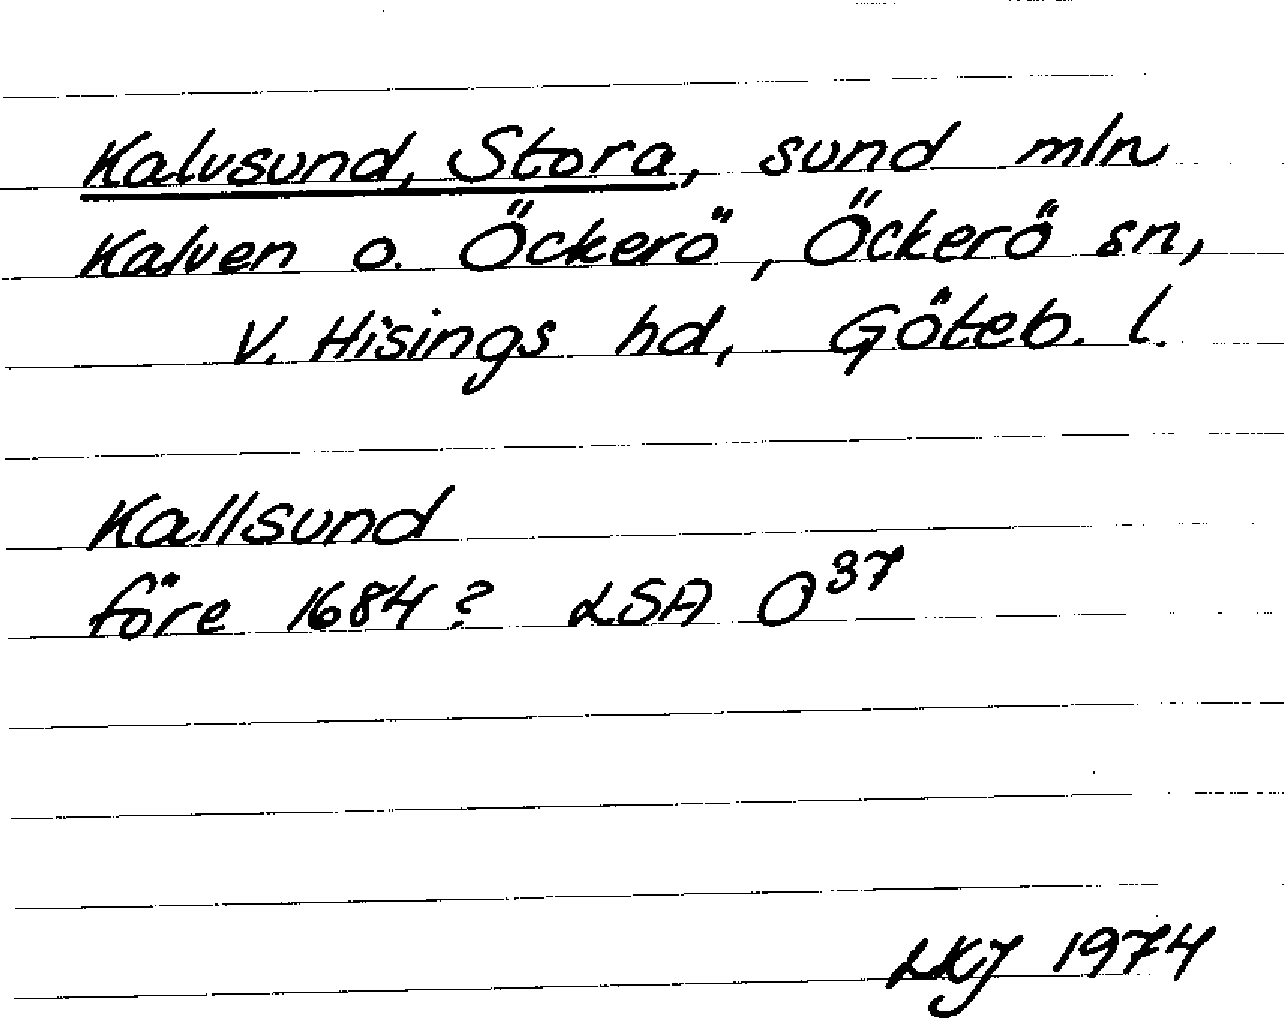 Kalvsund, Stora, sund mln
Kalven o. Öckerö, Öckerö sn,
V. Hisings hd, Göteb. l.
Kallsund
före 1684? LSA O³⁷
LKJ 1974